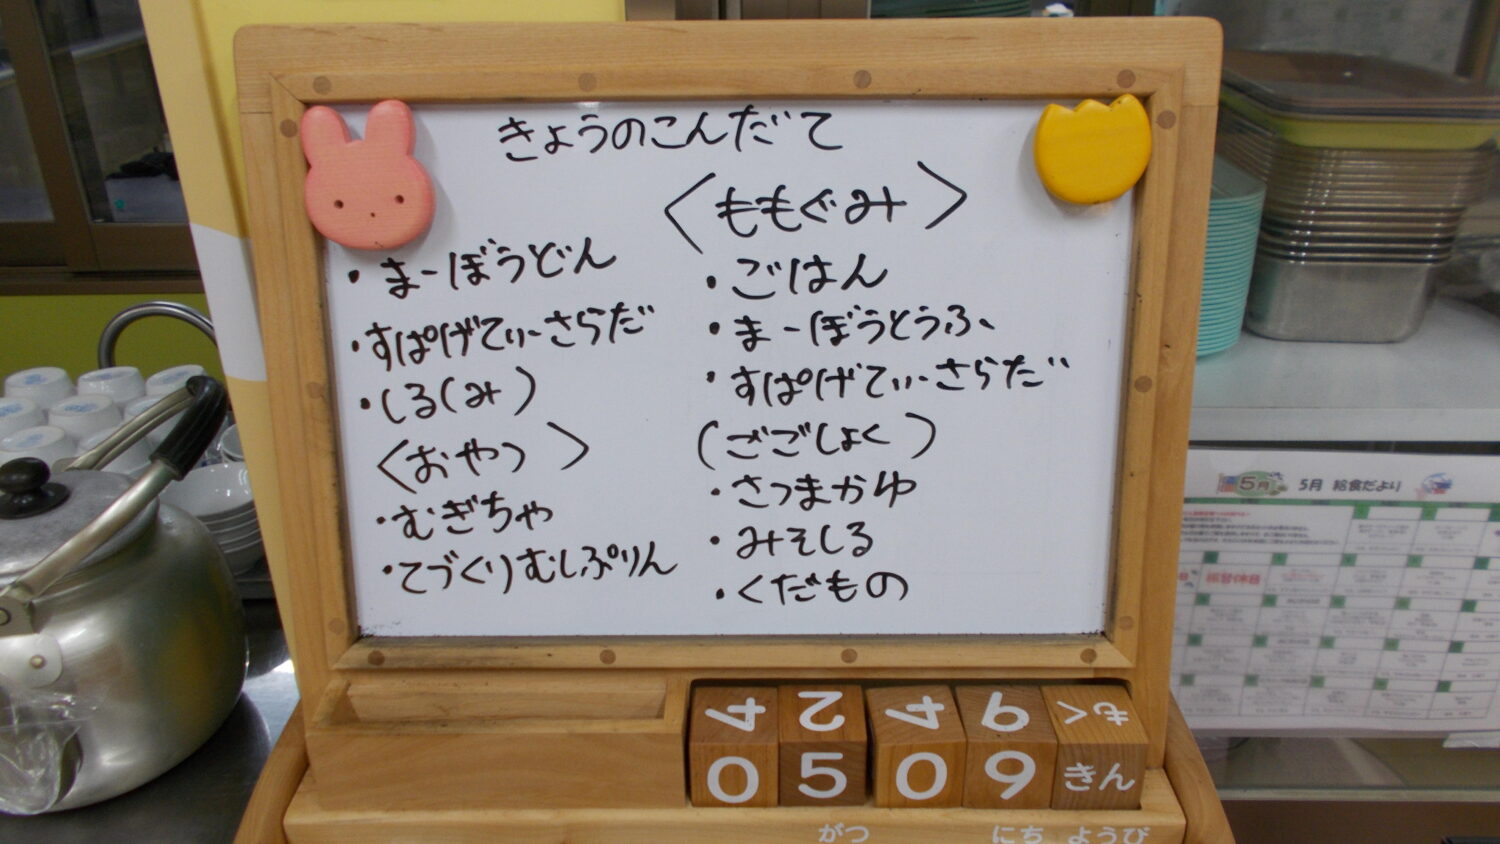 きょうのこんだて
・まーぼうどん
・すぱげてぃーさらだ
・しる(み)
〈おやつ〉
・むぎちゃ
・てづくりむしぷりん
〈ももぐみ〉
・ごはん
・まーぼうとうふ
・すぱげてぃーさらだ
(ごごしょく)
・さつまかゆ
・みそしる
・くだもの
4 2 4 6 もく
0 5 0 9 きん
がつ にち ようび
5月 5月 給食だより